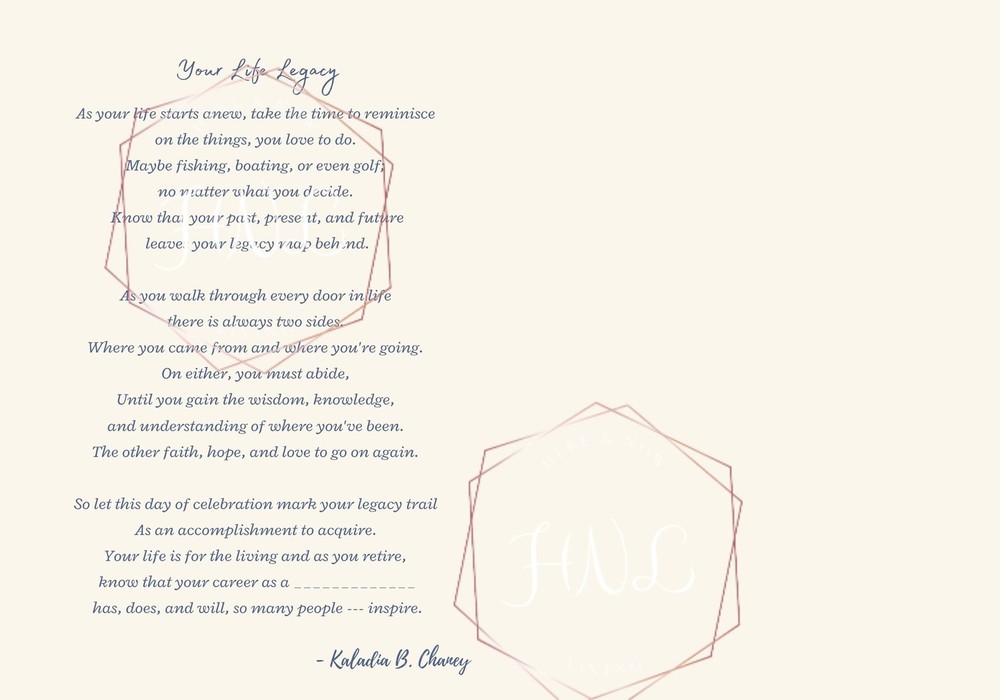 Your Life Legacy
As your life starts anew, take the time to reminisce
on the things, you love to do.
Maybe fishing, boating, or even golf;
no matter what you decide.
Know that your past, present, and future
leaves your legacy map behind.
As you walk through every door in life
there is always two sides.
Where you came from and where you're going.
On either, you must abide,
Until you gain the wisdom, knowledge,
and understanding of where you've been.
The other faith, hope, and love to go on again.
So let this day of celebration mark your legacy trail
As an accomplishment to acquire.
Your life is for the living and as you retire,
know that your career as a _____________
has, does, and will, so many people --- inspire.
- Kaladia B. Chaney
HNL
HNL